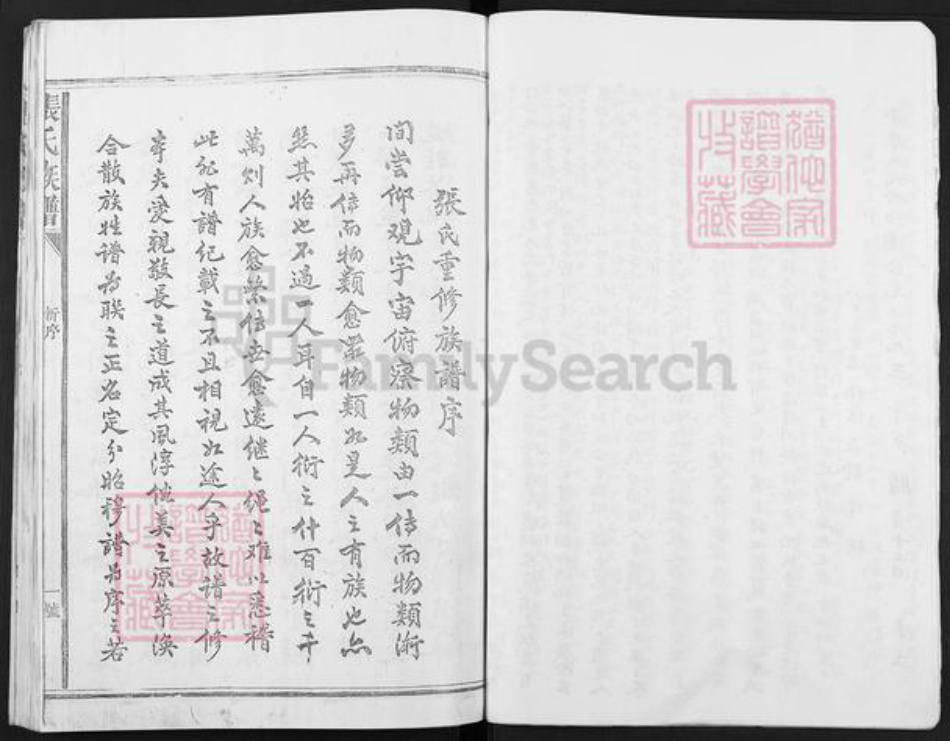 張氏重修族譜序
間嘗仰觀宇宙俯察物類由一傳而物類漸
多再傳而物類愈眾物類如是人之有族也亦
然其始也不過一人耳自一人衍之什百衍之千
萬則人族愈繁傳世愈遠継〻繩〻難以悉稽
此非有譜紀載之不且相視如途人乎故譜之修
率夫愛親敬長之道成其風淳俗美之原萃渙
合散族姓譜為聯之正名定分昭穆譜為序之若
張氏族譜
新序
一號
猶他家
譜學會
收藏
FamilySearch